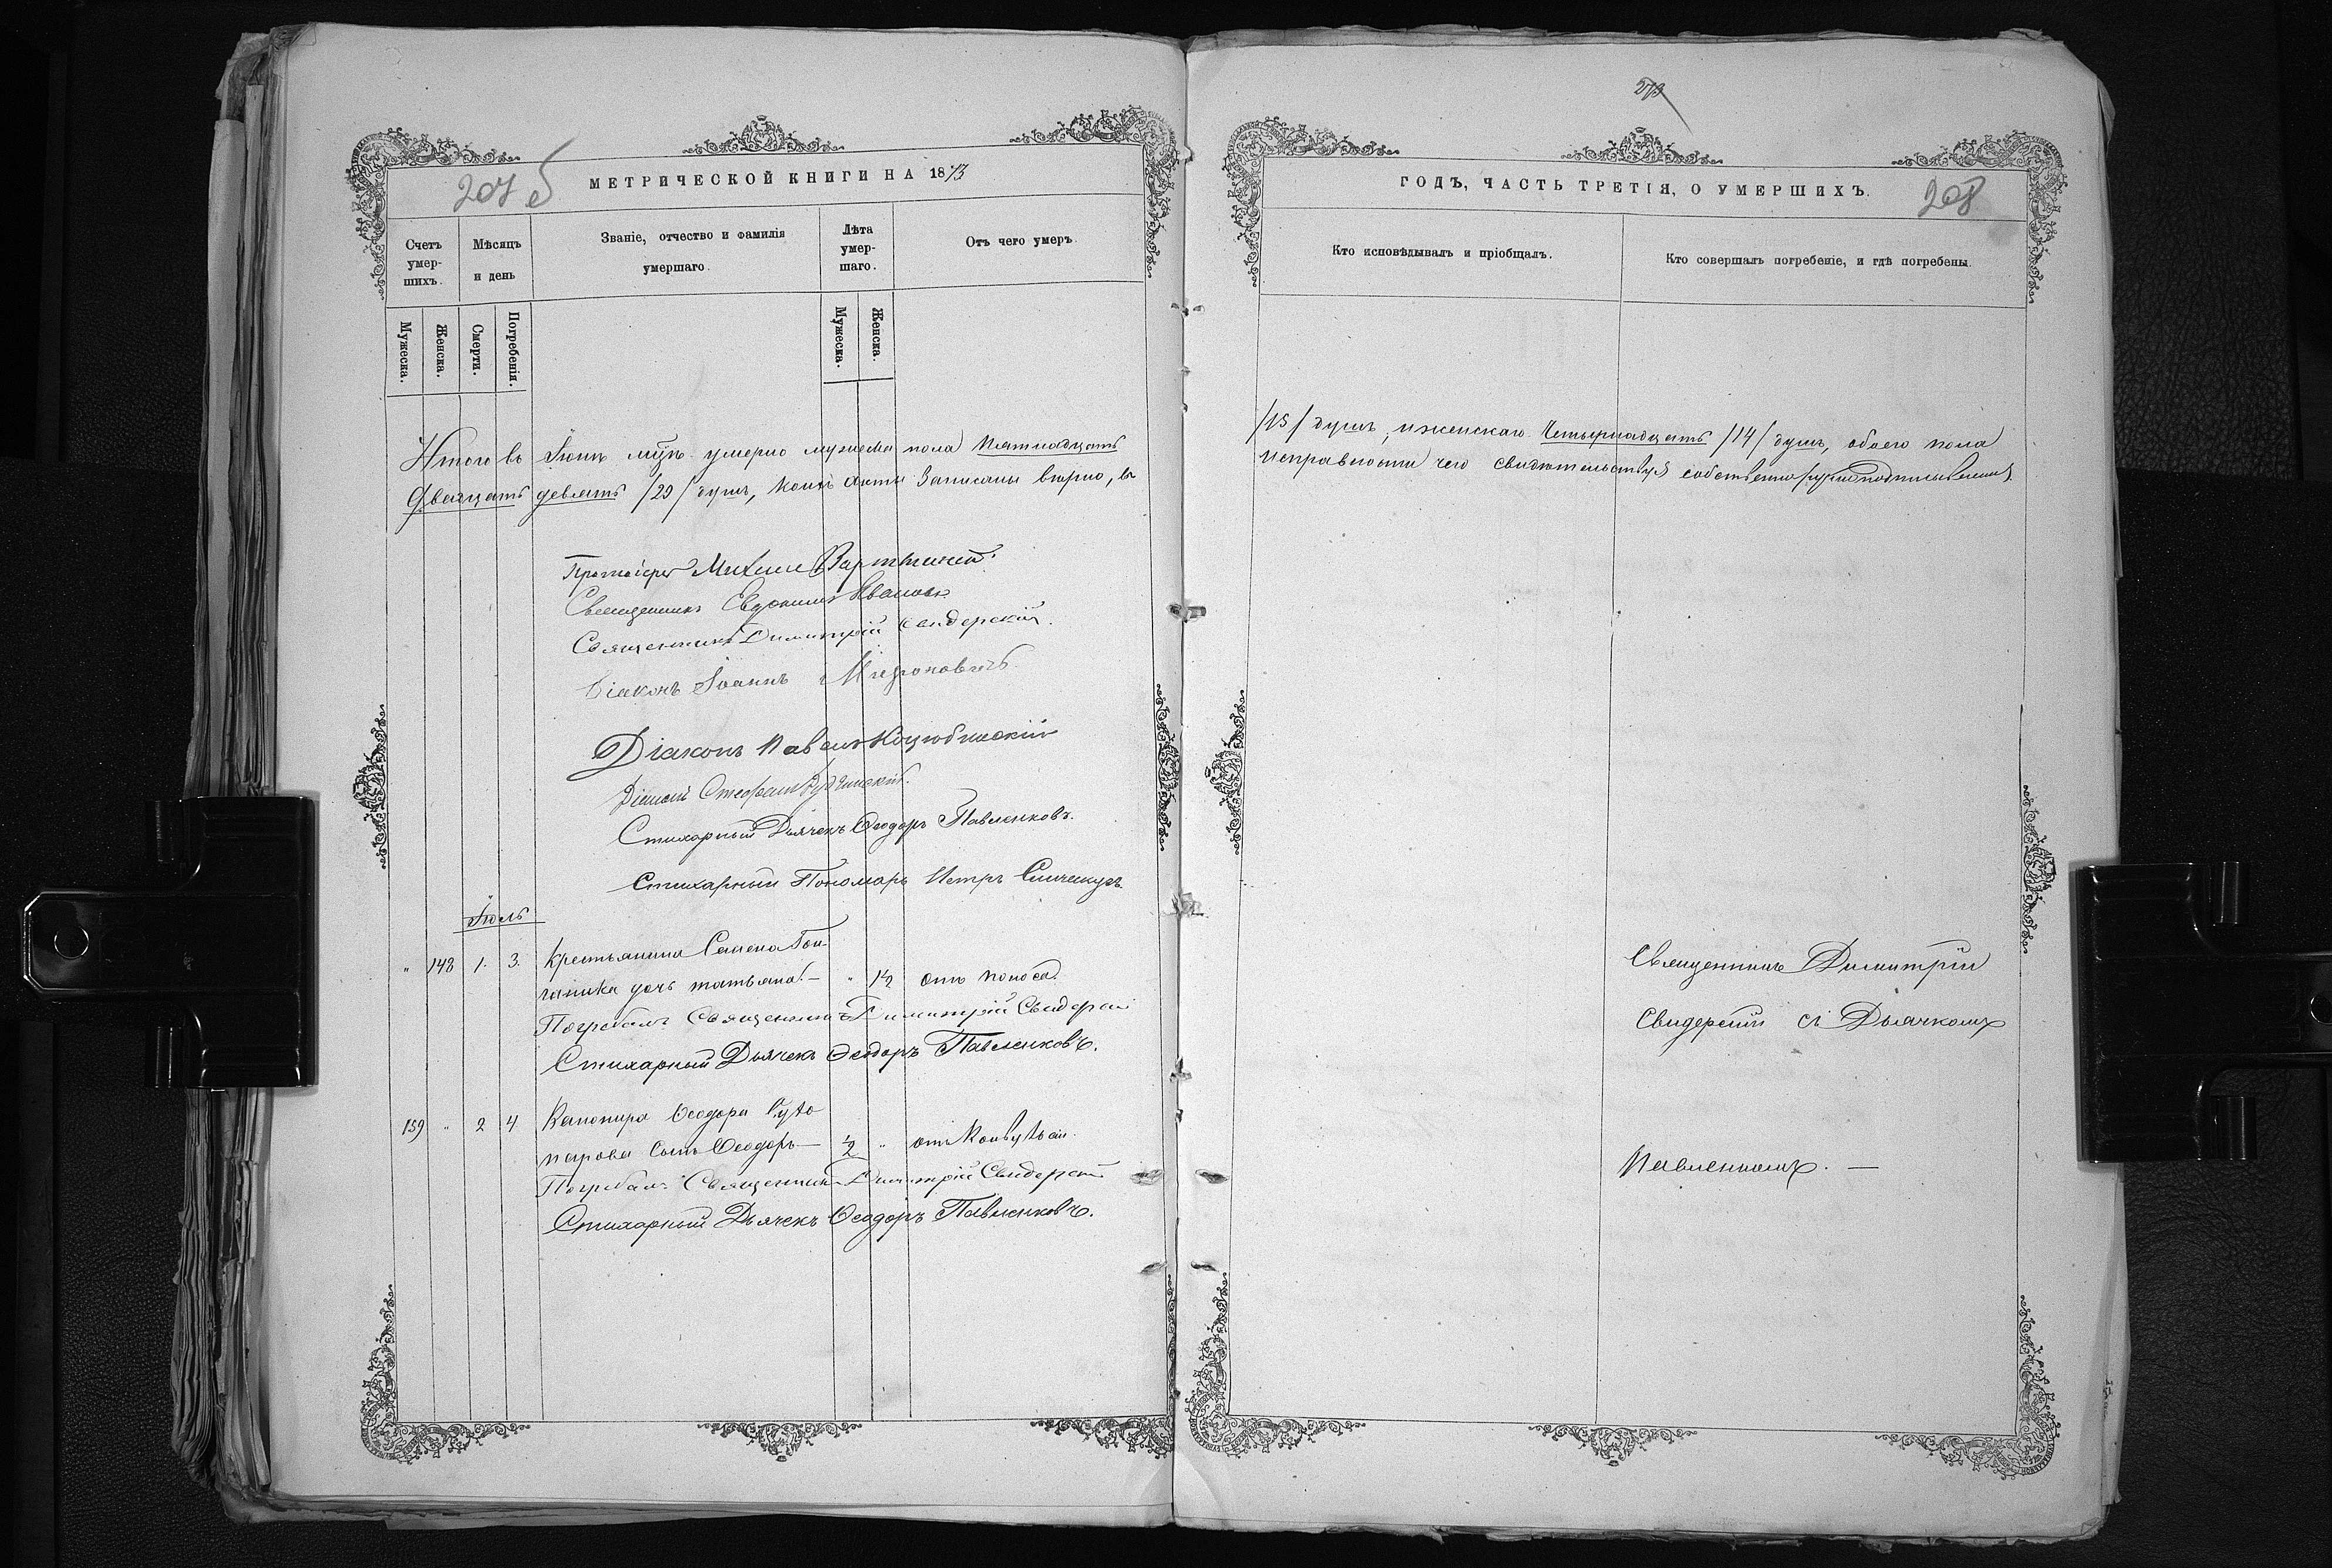 207 б
МЕТРИЧЕСКОЙ КНИГИ НА 1873
Счетъ умер-шихъ.
Мѣсяцъ и день
Званіе, отчество и фамилія умершаго.
Лѣта умер-шаго.
Отъ чего умеръ.
Мужеска.
Женска.
Смерти.
Погребенія.
Мужеска.
Женска.
Итого въ Іюнѣ умерло мужеска пола пятнадцать
Двадцать девять /29/ душъ, коихъ акты записаны вѣрно, въ
Протоіерей Михаилъ
Священникъ Евдокимъ Ивановъ
Священникъ Димитрій Свидерскій.
Діаконъ Іоаннъ Мировичъ
Діаконъ Павелъ Коцюбинскій
Діаконъ Стефанъ
Стихарный Дьячекъ Ѳеодоръ Павленковъ.
Стихарный Пономарь Петръ
Іюль
" 148 1. 3. Крестьянина Семена Гон-
чаника дочь Татьяна. — " 1/2 отъ поноса.
Погребалъ Священникъ Димитрій Свидерскій
Стихарный Дьячекъ Ѳеодоръ Павленковъ.
159 " 2 4 Канонира Ѳеодора
парова сынъ Ѳеодоръ — 1/2 " отъ конвульсій.
Погребалъ Священникъ Димитрій Свидерскій
Стихарный Дьячекъ Ѳеодоръ Павленковъ.
273
ГОДЪ, ЧАСТЬ ТРЕТІЯ, О УМЕРШИХЪ.
208
Кто исповѣдывалъ и пріобщалъ.
Кто совершалъ погребеніе, и гдѣ погребены.
/15/ душъ, и женскаго Четырнадцать /14/ душъ, обоего пола
исправности чего свидѣтельствуя собственноручно подписываемся
Священникъ Димитрій
Свидерскій съ Дьячкомъ
Павленкомъ. —